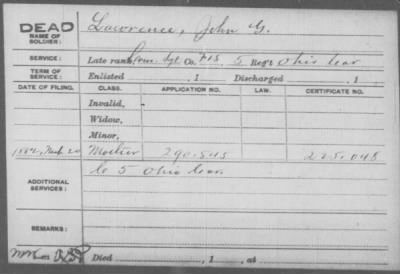 DEAD
NAME OF SOLDIER: Lawrence, John G.
SERVICE: Late rank, Com. Sgt. Co. F&S, 5 Reg't Ohio Cav.
TERM OF SERVICE: Enlisted , 1 Discharged , 1
DATE OF FILING. CLASS. APPLICATION NO. LAW. CERTIFICATE NO.
Invalid,
Widow,
Minor,
1882, 20 Mother 290.545 225.048
ADDITIONAL SERVICES: C 5 Ohio Cav.
REMARKS:
Died , 1 , at